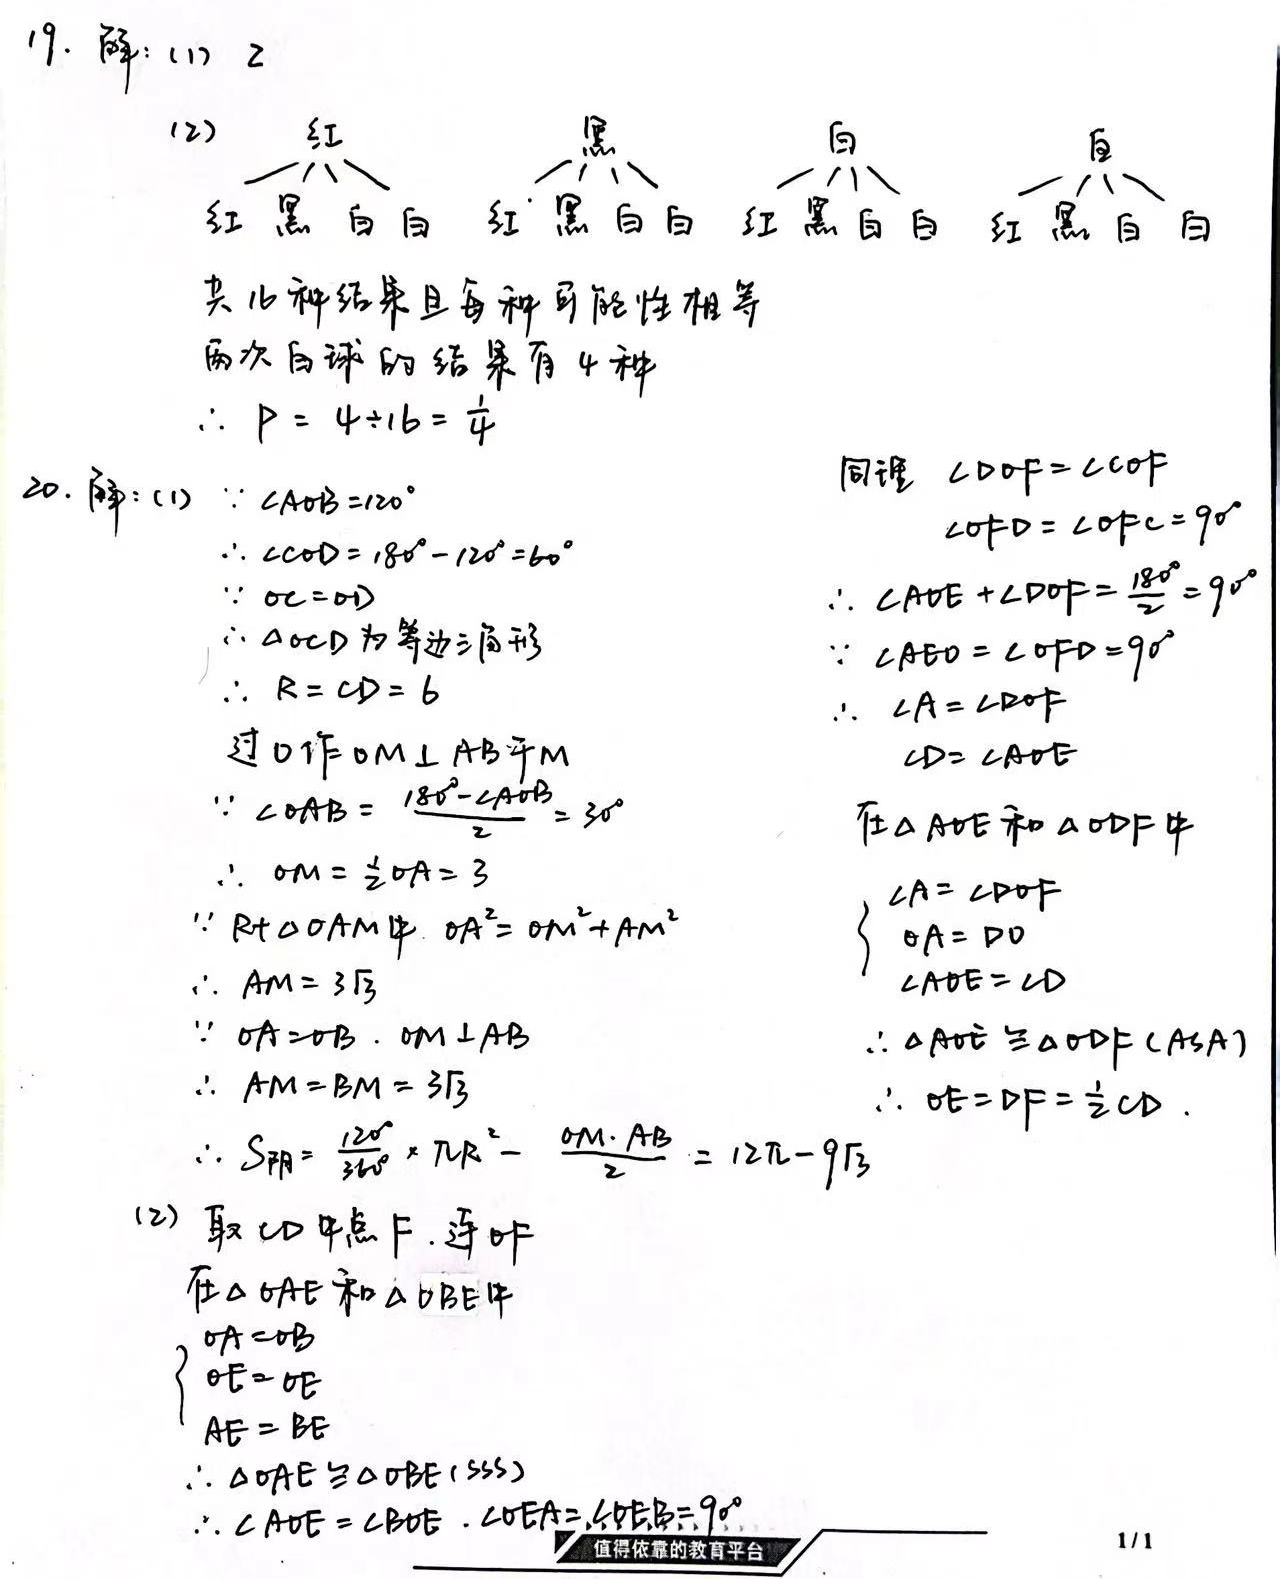 19. 解：(1) 2
(2) 红 黑 白 白
红 黑 白 白 红 黑 白 白 红 黑 白 白 红 黑 白 白
共16种结果且每种可能性相等
两次白球的结果有4种
∴ P = 4÷16 = 1/4
20. 解：(1) ∵ ∠AOB=120°
∴ ∠COD=180°-120°=60°
∵ OC=OD
∴ △OCD为等边三角形
∴ R=CD=6
过O作OM⊥AB于M
∵ ∠OAB = (180°-∠AOB)/2 = 30°
∴ OM = 1/2 OA = 3
∵ Rt△OAM中. OA²=OM²+AM²
∴ AM = 3√3
∵ OA=OB. OM⊥AB
∴ AM=BM=3√3
∴ S阴 = 120°/360° × πR² - (OM·AB)/2 = 12π-9√3
(2) 取CD中点F.连OF
在△OAE和△OBE中
OA=OB
OE=OE
AE=BE
∴ △OAE≌△OBE(SSS)
∴ ∠AOE=∠BOE. ∠OEA=∠OEB=90°
同理 ∠DOF=∠COF
∠OFD=∠OFC=90°
∴ ∠AOE+∠DOF=180°/2=90°
∵ ∠AEO=∠OFD=90°
∴ ∠A=∠DOF
∠D=∠AOE
在△AOE和△ODF中
∠A=∠DOF
OA=DO
∠AOE=∠D
∴ △AOE≌△ODF(ASA)
∴ OE=DF=1/2 CD.
值得依靠的教育平台
1/1